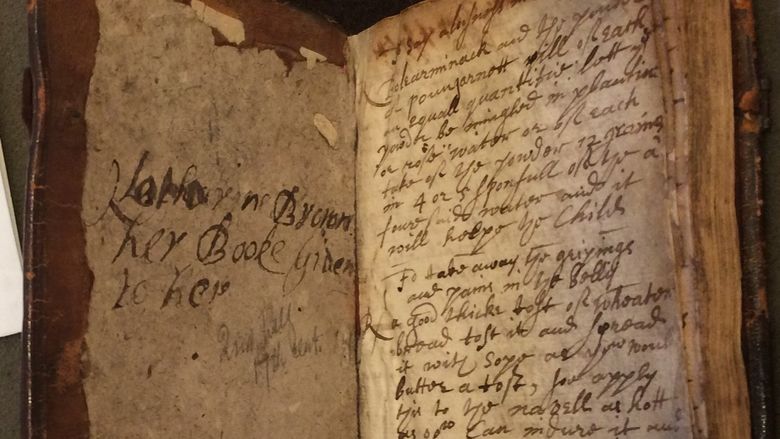 Katharine Brown
her Booke Given
to her
17th cent.
Bolearminack and the powder
of powngarnett will of each
an equall quantitie lett ye
powder be mingled in plantin
or rose water of each
take of ye powder 12 graines
in 4 or 5 sponfull of ye a
fore said water and it
will helpe ye Child
To take away the gripings
and pains in ye belly
R a good thicke tost of wheaten
bread tost it and spread
it with Sope as you would
butter a tost, soe apply
this to ye navell as hott
as Can indure it and